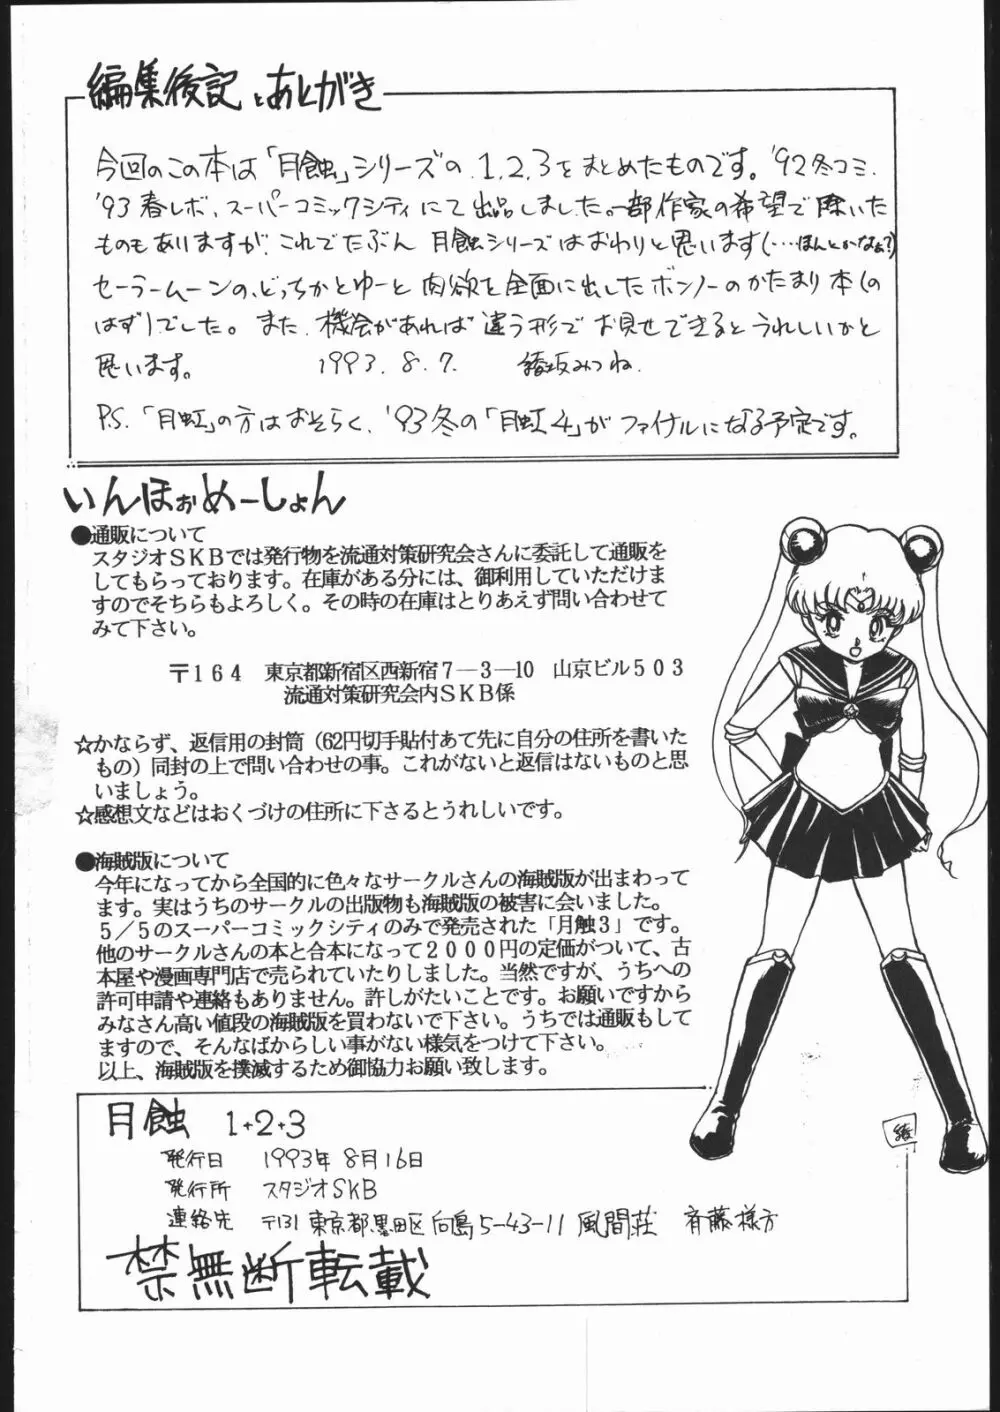 編集後記とあとがき
今回のこの本は「月蝕」シリーズの1,2,3をまとめたものです。'92冬コミ、
'93春レボ、スーパーコミックシティにて出品しました。一部作家の希望で除いた
ものもありますが、これでたぶん月蝕シリーズはおわりと思います(…ほんとかなぁ?)
セーラームーンの、どっちかとゆーと肉欲を全面に出したボンノーのかたまり本(の
はず)でした。また、機会があれば違う形でお見せできるとうれしいかと
思います。 1993.8.7. 綾坂みつね
P.S.「月虹」の方はおそらく、'93冬の「月虹4」がファイナルになる予定です。
いんほぉめーしょん
●通販について
スタジオSKBでは発行物を流通対策研究会さんに委託して通販を
してもらっております。在庫がある分には、御利用していただけま
すのでそちらもよろしく。その時の在庫はとりあえず問い合わせて
みて下さい。
〒164 東京都新宿区西新宿7―3―10 山京ビル503
流通対策研究会内SKB係
☆かならず、返信用の封筒(62円切手貼付あて先に自分の住所を書いた
もの)同封の上で問い合わせの事。これがないと返信はないものと思
いましょう。
☆感想文などはおくづけの住所に下さるとうれしいです。
●海賊版について
今年になってから全国的に色々なサークルさんの海賊版が出まわって
ます。実はうちのサークルの出版物も海賊版の被害に会いました。
5/5のスーパーコミックシティのみで発売された「月触3」です。
他のサークルさんの本と合本になって2000円の定価がついて、古
本屋や漫画専門店で売られていたりしました。当然ですが、うちへの
許可申請や連絡もありません。許しがたいことです。お願いですから
みなさん高い値段の海賊版を買わないで下さい。うちでは通販もして
ますので、そんなばからしい事がない様気をつけて下さい。
以上、海賊版を撲滅するため御協力お願い致します。
綾
月蝕 1+2+3
発行日 1993年8月16日
発行所 スタジオSKB
連絡先 〒131 東京都墨田区向島5-43-11 風間荘 斉藤様方
禁無断転載